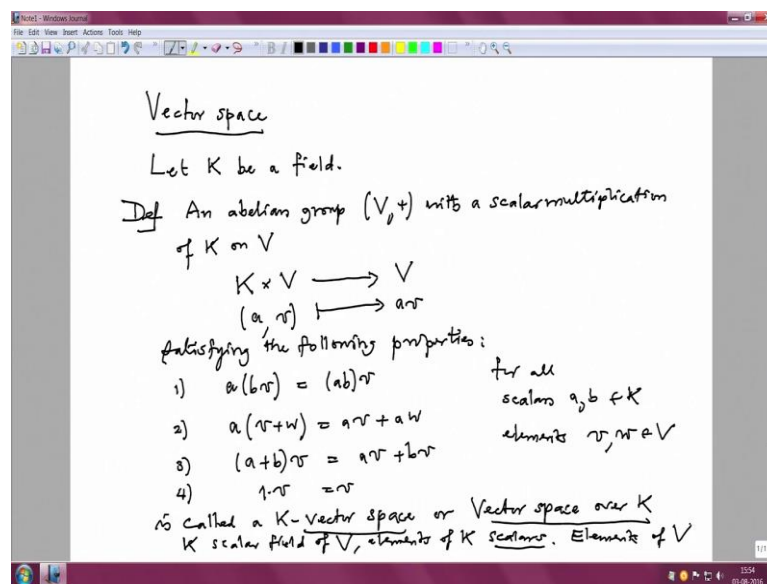 Note1 - Windows Journal
File Edit View Insert Actions Tools Help
Vector space
Let K be a field.
Def An abelian group (V, +) with a scalar multiplication
of K on V
K × V ⟶ V
(a, v) ⟼ av
satisfying the following properties:
1) a(bv) = (ab)v
2) a(v+w) = av + aw
3) (a+b)v = av + bv
4) 1·v = v
for all
scalars a, b ∈ K
elements v, w ∈ V
is called a K-vector space or Vector space over K
K scalar field of V, elements of K scalars. Elements of V
1/1
15:54
03-08-2016